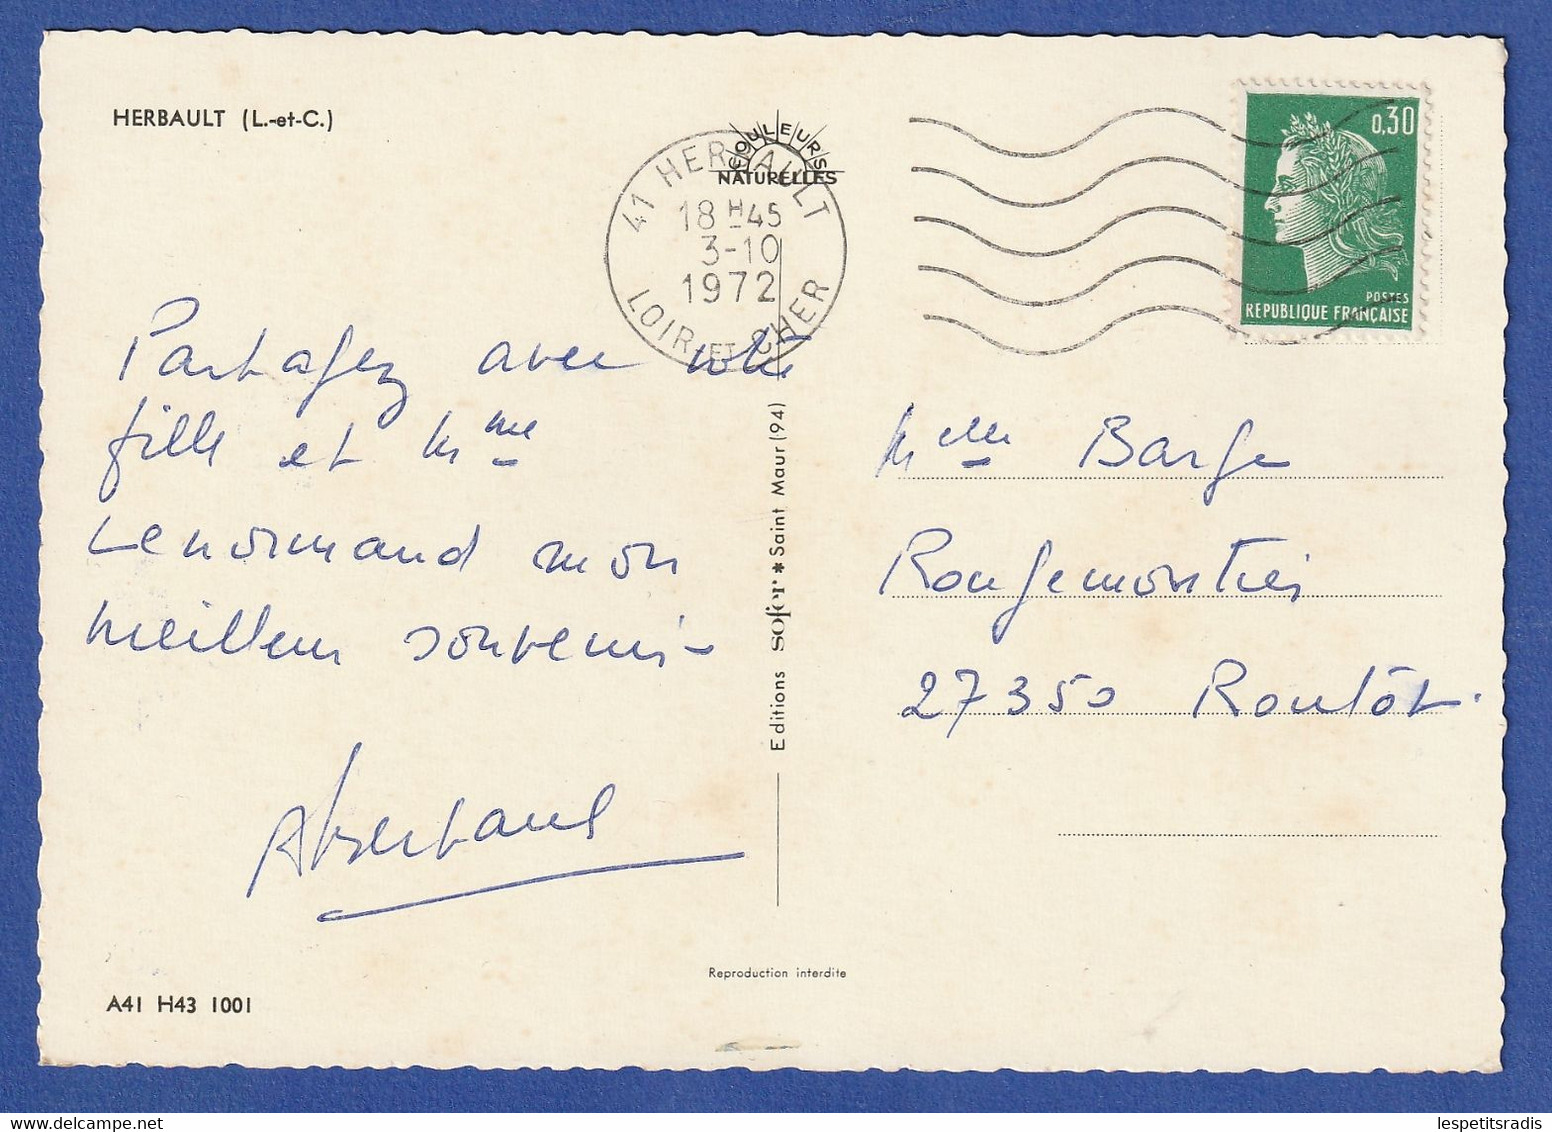 HERBAULT (L.-et-C.)
COULEURS
NATURELLES
41 HERBAULT
18 H 45
3-10
1972
LOIR ET CHER
0,30
POSTES
REPUBLIQUE FRANÇAISE
Partagez avec votre
fille et Mme
Lenormand mon
meilleur souvenir
Melle Barge
Rougemontiers
27350 Routot.
Editions Sofer * Saint Maur (94)
Reproduction interdite
A41 H43 1001
lespetitsradis